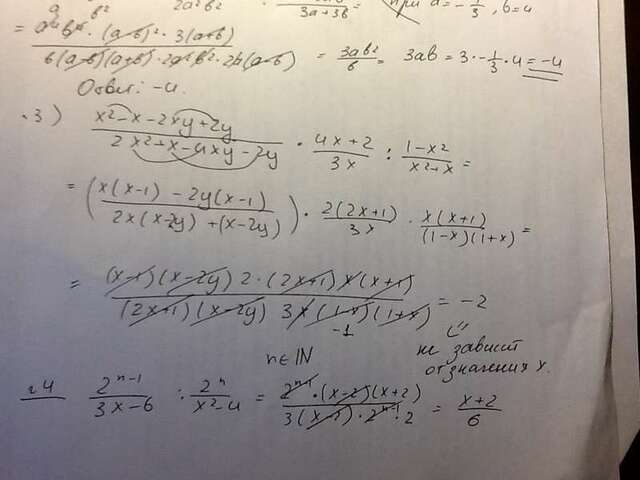 3a+3b = при a = -1/3, b=4
= a²b⁴ · (a-b)² · 3(a+b) / 6(a-b)(a+b) · 2a²b² · 2b(a-b) = 3ab²/b = 3ab = 3·-1/3·4 = -4
Ответ: -4.
.3) x²-x-2xy+2y / 2x²+x-4xy-2y · 4x+2 / 3x : 1-x² / x²+x =
= (x(x-1) - 2y(x-1) / 2x(x-2y) + (x-2y)) · 2(2x+1) / 3x · x(x+1) / (1-x)(1+x) =
= (x-1)(x-2y) 2·(2x+1) x(x+1) / (2x+1)(x-2y) 3x(1-x)(1+x) = -2
-1
не зависит
от значения x.
n∈ℕ
г4 2ⁿ⁻¹ / 3x-6 : 2ⁿ / x²-4 = 2ⁿ⁻¹·(x-2)(x+2) / 3(x-2)·2ⁿ⁻¹·2 = x+2 / 6